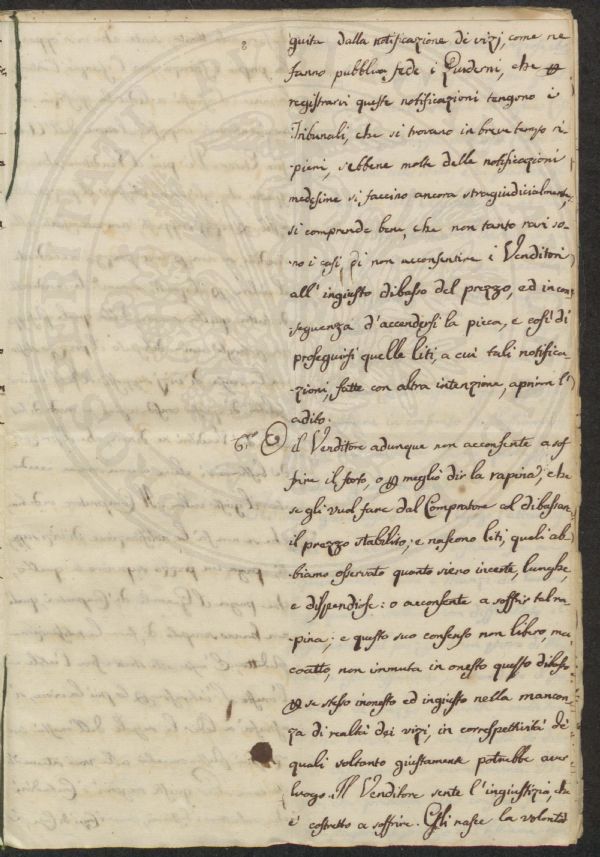 8
guita dalla notificazione di vizj, come ne
fanno pubblica fede i Quaderni, che ꝑ
registrarvi queste notificazioni tengono i
Tribunali, che si trovano in breve tempo ri-
pieni, sebbene molte delle notificazioni
medesime si faccino ancora stragiudicialmente,
si comprende bene, che non tanto rari so-
no i casi, di non acconsentire i Venditori
all' ingiusto dibasso del prezzo, ed in con
seguenza d'accendersi la picca, e così di
proseguirsi quelle liti, a cui tali notifica
zioni, fatte con altra intenzione, aprirn l'
adito.
6.º il Venditore adunque non acconsente a sof
frire il torto, o ꝑ meglio dir la rapina, che
se gli vuol fare dal Compratore col dibassar
il prezzo stabilito; e nascono liti, quali ab
biamo osservato quanto sieno incerte, lunghe,
e dispendiose: o acconsente a soffrir tal ra
pina; e questo suo consenso non libero, ma
coatto, non immuta in onesto questo dibasso
ꝑ se stesso inonesto ed ingiusto nella mancan
za di realtà dei vizi, in correspettività de
quali soltanto giustamente potrebbe aver
luogo. Il Venditore sente l'ingiustizia, che
è costretto a soffrire. Gli nasce la volontà